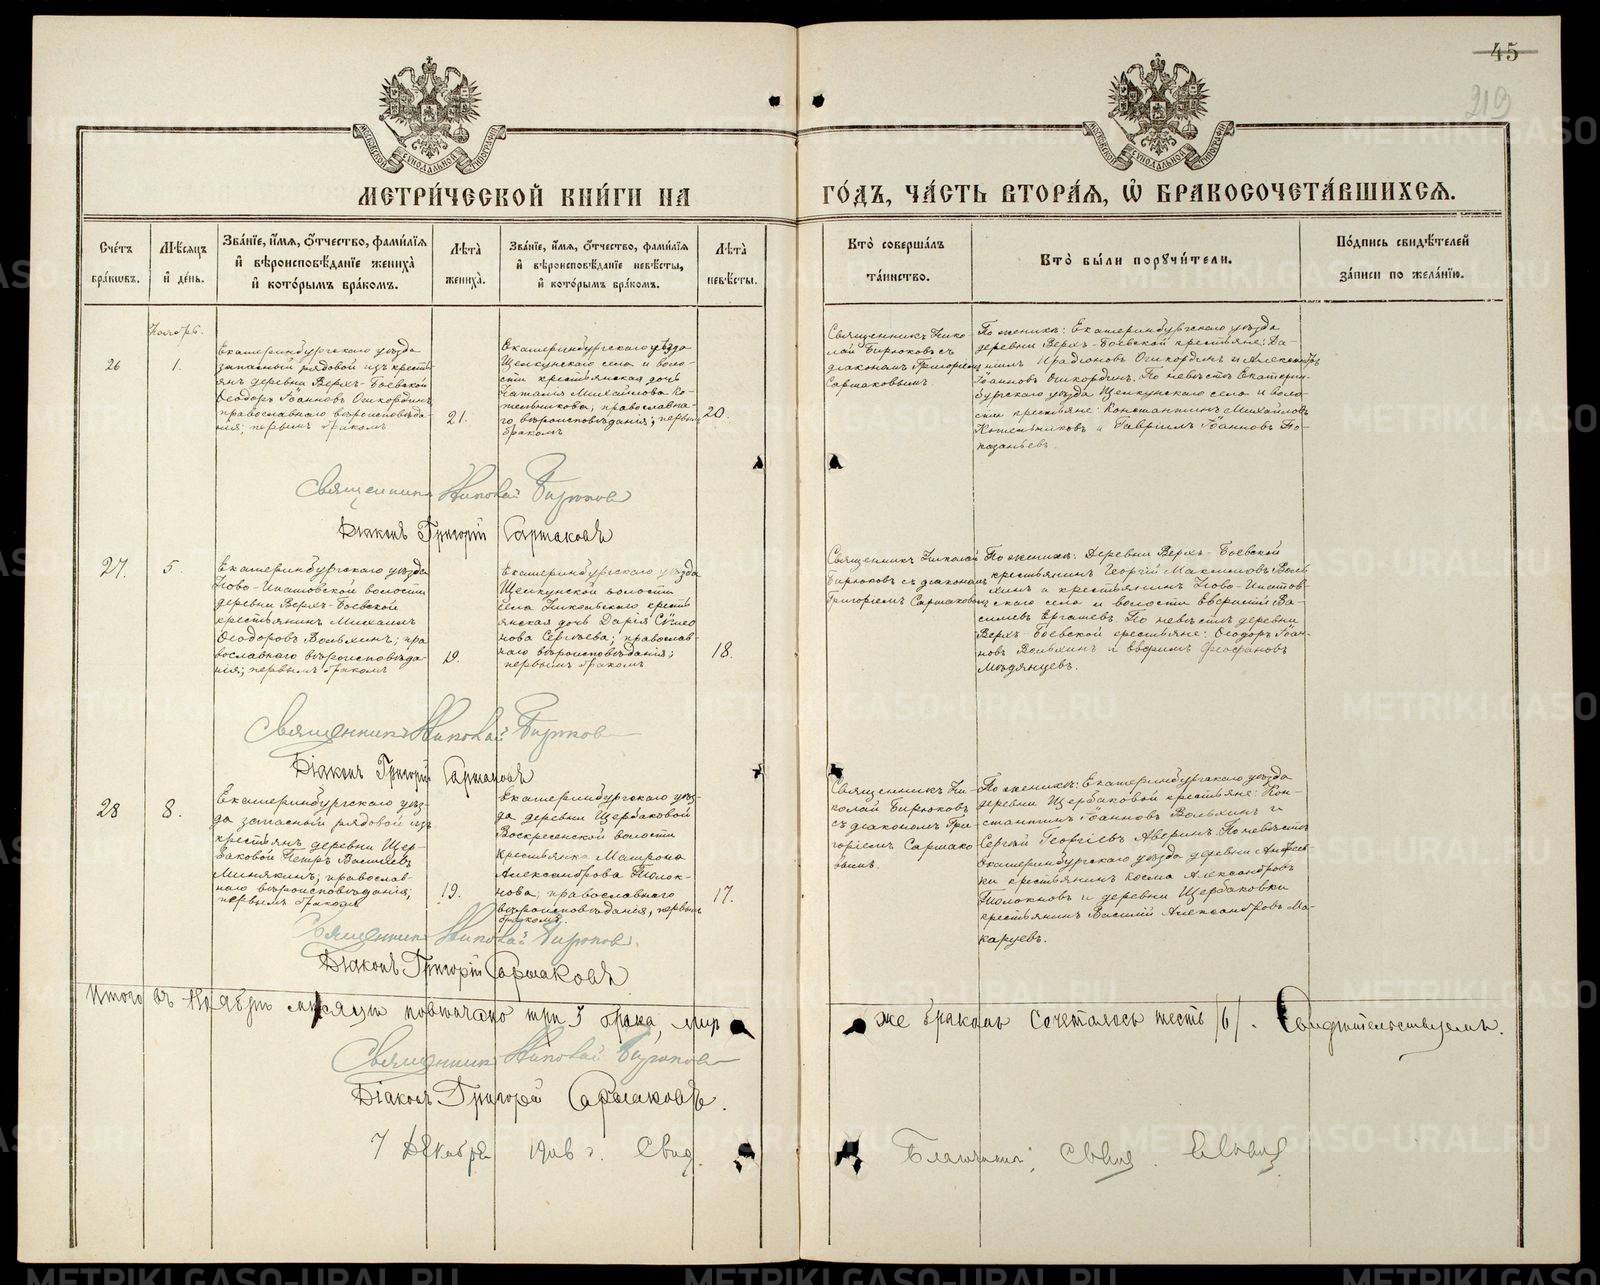 45
219
МЕТРИ́ЧЕСКОЙ КНИ́ГИ НА ГО́ДЪ, ЧА́СТЬ ВТОРА́Я, Ѡ҆ БРАКОСОЧЕТА́ВШИХСЯ.
Сче́тъ бра́кѡвъ.
Мѣ́сяцъ и҆ де́нь.
Зва́нїе, и҆́мя, ѻ҆́тчество, фами́лїя
и҆ вѣроисповѣ́данїе жениха̀
и҆ кото́рымъ бра́комъ.
Лѣ́та жениха̀.
Зва́нїе, и҆́мя, ѻ҆́тчество, фами́лїя
и҆ вѣроисповѣ́данїе невѣ́сты,
и҆ кото́рымъ бра́комъ.
Лѣ́та невѣ́сты.
Кто̀ соверша́лъ
та́инство.
Кто̀ бы́ли поручи́тели.
По́дпись свидѣ́телей
за́писи по жела́нїю.
Ноябрь.
26
1.
Екатеринбургскаго уѣзда
запасный рядовой изъ кресть
янъ деревни Верхъ-Боевской
Ѳеодоръ Іоанновъ Ошкординъ
православнаго вѣроисповѣда-
нія; первымъ бракомъ
21.
Екатеринбургскаго уѣзда
Щелкунскаго села и воло-
сти крестьянская дочь
Наталья Михайлова Ко-
тельникова, православна-
го вѣроисповѣданія; первымъ
бракомъ
20.
Священникъ Нико
лай Бирюковъ съ
діакономъ Григоріемъ
Саршаковымъ
По женихѣ: Екатеринбургскаго уѣзда
деревни Верхъ-Боевской крестьяне: Да-
ніилъ Иродіоновъ Ошкординъ и Алексѣй
Іоанновъ Ошкординъ. По невѣстѣ Екатерин-
бургскаго уѣзда Щелкунскаго села и воло-
сти крестьяне: Константинъ Михайловъ
Котельниковъ и Гавріилъ Іоанновъ По-
Священникъ Николай Бирюков
Діаконъ Григорій Саршаковъ
27.
5.
Екатеринбургскаго уѣзда
Ново-Ипатовской волости
деревни Верхъ-Боевской
крестьянинъ Михаилъ
Ѳеодоровъ Вольхинъ; пра
вославнаго вѣроисповѣда-
нія; первымъ бракомъ
19.
Екатеринбургскаго уѣзда
Щелкунской волости
села Никольскаго кресть
янская дочь Дарія Симео
нова Сергѣева; православ
наго вѣроисповѣданія;
первымъ бракомъ
18.
Священникъ Николай
Бирюковъ съ діакономъ
Григоріемъ Саршаковымъ
По женихѣ: Деревни Верхъ-Боевской
крестьянинъ Георгій Максимовъ Воль
хинъ и крестьянинъ Ново-Ипатов
скаго села и волости Евѳристъ Ва-
сильевъ Ергашевъ. По невѣстѣ деревни
Верхъ-Боевской крестьяне: Ѳеодоръ Іоан-
новъ Вольхинъ и Ефремъ Ѳеофановъ
Медянцевъ.
Священникъ Николай Бирюков
Діаконъ Григорій Саршаковъ
28
8.
Екатеринбургскаго уѣз-
да запасный рядовой изъ
крестьянъ деревни Щер-
баковой Петръ Васильевъ
Минякинъ; православ-
наго вѣроисповѣданія;
первымъ бракомъ
19.
Екатеринбургскаго уѣз-
да деревни Щербаковой
Воскресенской волости
крестьянка Матрона
Александрова Толок-
нова; православнаго
вѣроисповѣданія; первымъ
бракомъ
17.
Священникъ Ни-
колай Бирюковъ
съ діакономъ Гри-
горіемъ Саршако
вымъ.
По женихѣ: Екатеринбургскаго уѣзда
деревни Щербаковой крестьяне: Кон-
стантинъ Іоанновъ Вольхинъ и
Сергѣй Георгіевъ Аверинъ. По невѣстѣ
Екатеринбургскаго уѣзда деревни
крестьянинъ Косма Александровъ
Толокновъ и деревни Щербаковки
крестьянинъ Василій Александровъ Ма-
каруевъ.
Священникъ Николай Бирюков
Діаконъ Григорій Саршаковъ
Итого въ Ноябрѣ мѣсяцѣ повѣнчано три 3 брака,
же бракомъ сочеталось шесть /6/. Свидѣтельствуемъ.
Священникъ Николай Бирюков
Діаконъ Григорій Саршаковъ.
7 Декабря 1906 г. Свид.
Благочинный, Свящ.
METRIKI.GASO-URAL.RU